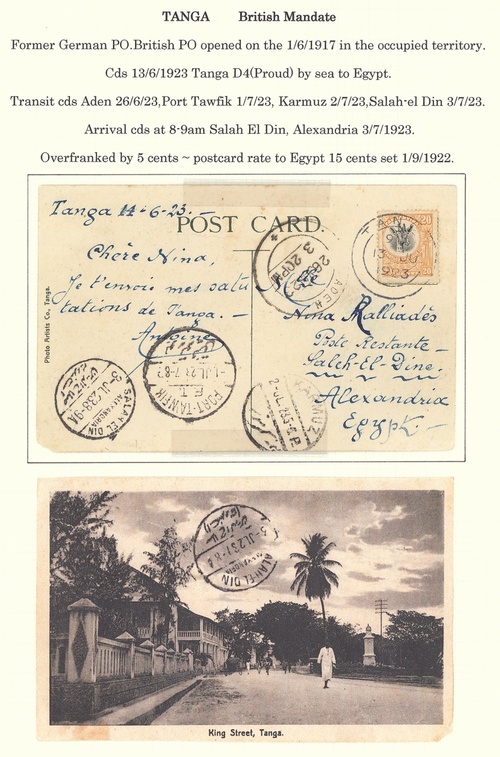 TANGA British Mandate
Former German PO.British PO opened on the 1/6/1917 in the occupied territory.
Cds 13/6/1923 Tanga D4(Proud) by sea to Egypt.
Transit cds Aden 26/6/23,Port Tawfik 1/7/23, Karmuz 2/7/23,Salah-el Din 3/7/23.
Arrival cds at 8-9am Salah El Din, Alexandria 3/7/1923.
Overfranked by 5 cents ~ postcard rate to Egypt 15 cents set 1/9/1922.
Tanga 14-6-23.-
POST CARD.
Chère Nina,
Je t'envoie mes salu
tations de Tanga.-
Antoine
Photo Artists Co., Tanga.
Mlle
Nina Malliadès
Poste Restante-
Saleh-El-Dine.
Alexandria
Egypt.-
20 20
TAN
13 JU
1923
ADEN
3 20PM
PORT-TAWFIK
1-JL.23.7-8
KARMUZ
2-JL
SALAH EL DIN
ALEXANDRIA
3-JL.23.8-9A
ALAH-EL DIN
JL.23
King Street, Tanga.